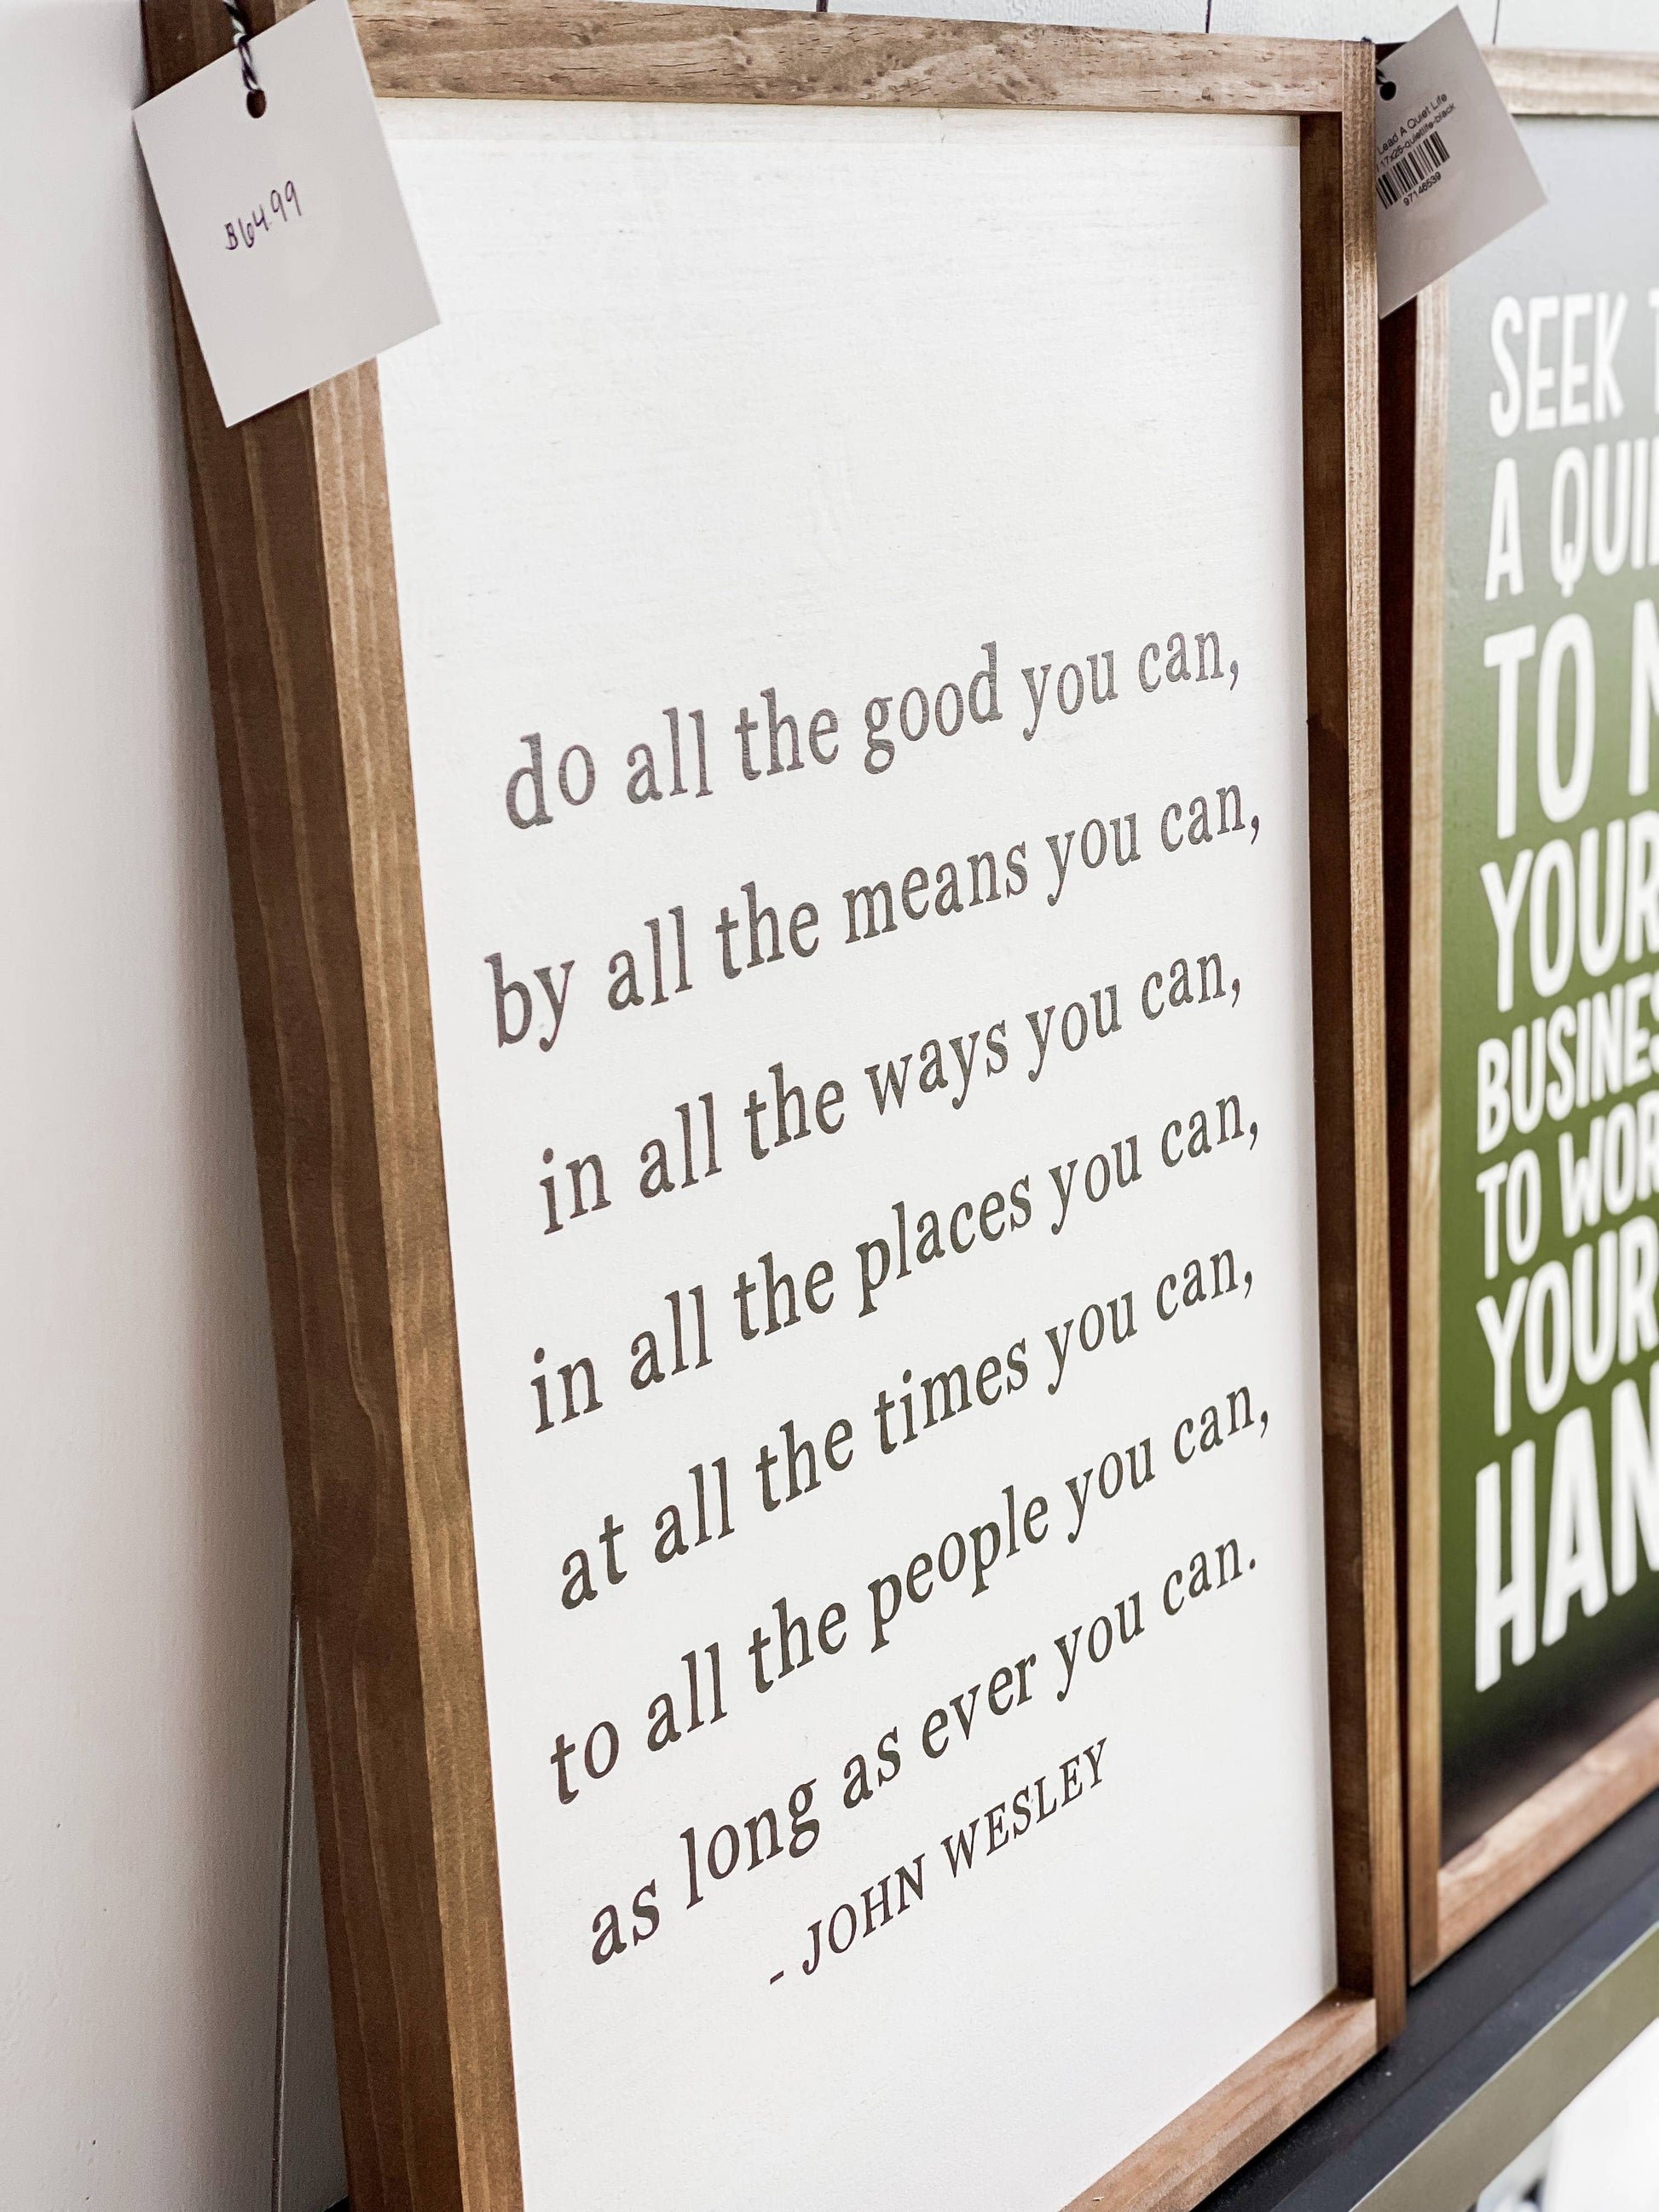 $64.99
Lead A Quiet Life
17x25-quietlife-black
97146539
do all the good you can,
by all the means you can,
in all the ways you can,
in all the places you can,
at all the times you can,
to all the people you can,
as long as ever you can.
- JOHN WESLEY
SEEK
A
TO
YOUR
TO
YOUR